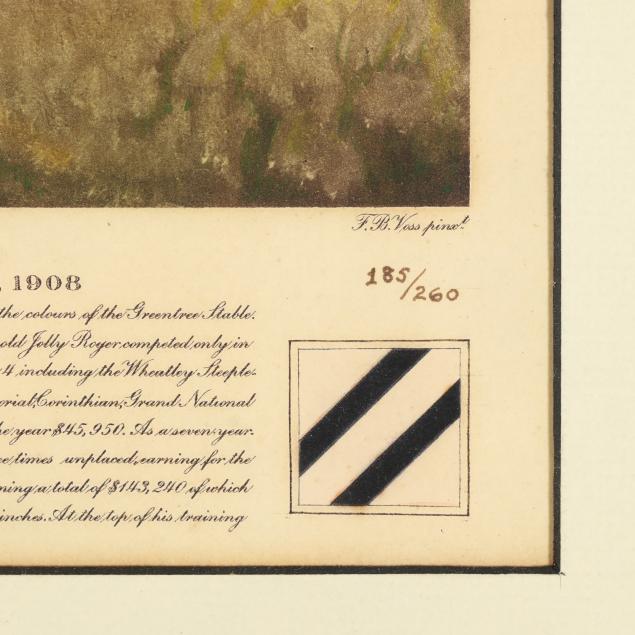 F.B. Voss pinx.t
, 1908
185/260
the colours of the Greentree Stable.
old Jolly Roger competed only in
4 including the Wheatley Steeple-
orial, Corinthian, Grand National
the year $45,950. As a seven year
ee times unplaced, earning for the
ning a total of $143,240 of which
inches. At the top of his training